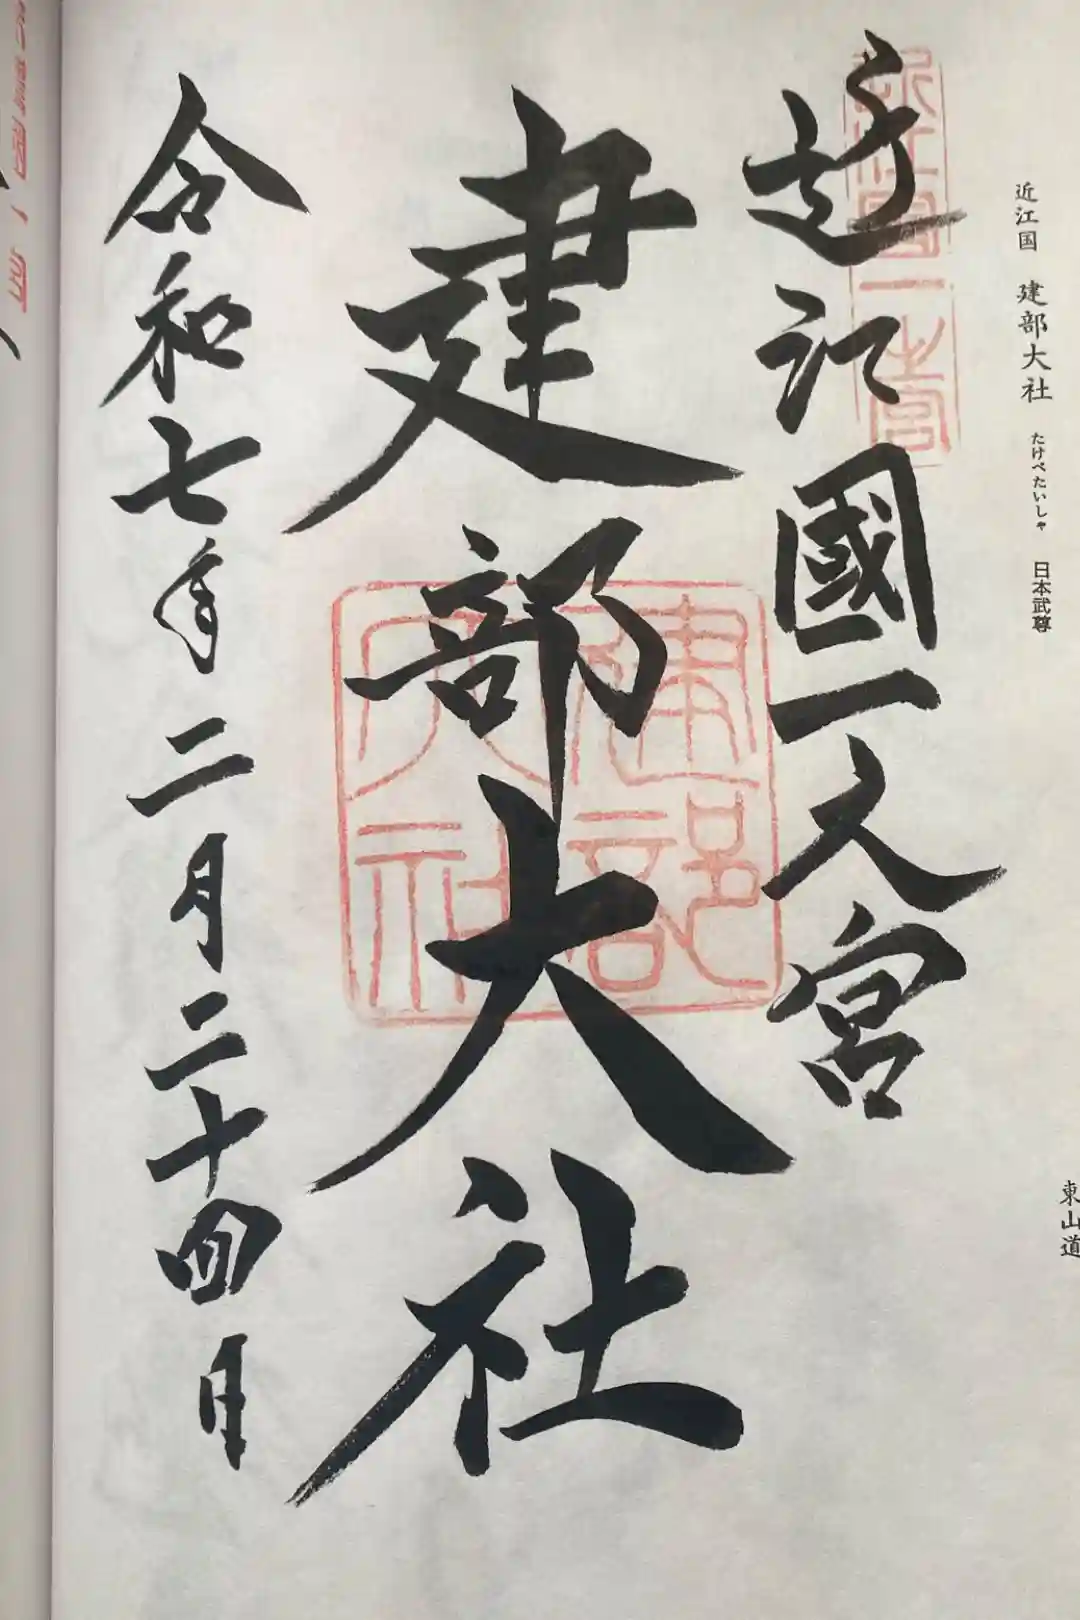 近江国 建部大社 たけべたいしゃ 日本武尊
東山道
近江國一之宮
近江國一之宮
建部大社
建部大社
令和七年二月二十四日